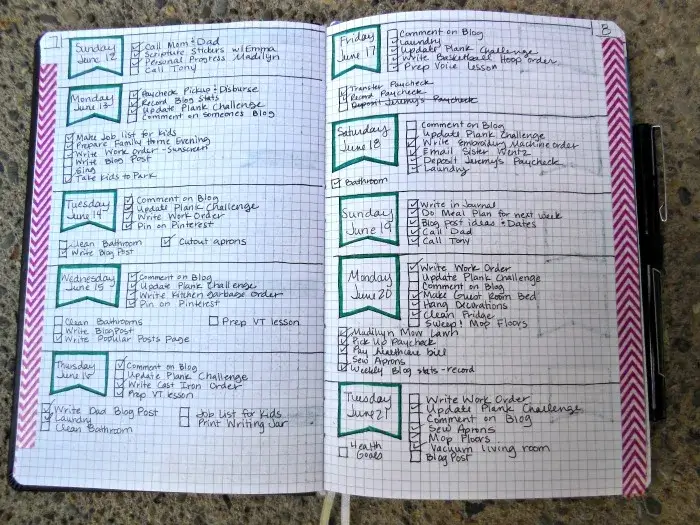 7
Sunday
June 12
Call Mom & Dad
Scripture Stickers w/Emma
Personal Progress Madilyn
Call Tony
Monday
June 13
Paycheck Pickup & Disburse
Record Blog Stats
Update Plank Challenge
Comment on Someones Blog
Make Job list for kids
Prepare Family Home Evening
Write Work Order - Sunscreen
Write Blog Post
Sing
Take kids to Park
Tuesday
June 14
Comment on Blog
Update Plank Challenge
Write Work Order
Pin on Pinterest
Clean Bathroom
Cutout aprons
Write Blog Post
Wednesday
June 15
Comment on Blog
Update Plank Challenge
Write Kitchen Garbage Order
Pin on Pinterest
Clean Bathrooms
Prep VT lesson
Write Blog Post
Write Popular Posts Page
Thursday
June 16
Comment on Blog
Update Plank Challenge
Write Cast Iron Order
Prep VT lesson
Write Dad Blog Post
Job List for Kids
Laundry
Print Writing Jar
Clean Bathroom
8
Friday
June 17
Comment on Blog
Laundry
Update Plank Challenge
Write Basketball Hoop order
Prep Voice lesson
Transfer Paycheck
Record Paycheck
Deposit Jeremy's Paycheck
Saturday
June 18
Comment on Blog
Update Plank Challenge
Write Embroidery Machine order
Email Sister Wentz
Deposit Jeremy's Paycheck
Laundry
Bathroom
Sunday
June 19
Write in Journal
Do Meal Plan for next week
Blog post ideas & Dates
Call Dad
Call Tony
Monday
June 20
Write Work Order
Update Plank Challenge
Comment on Blog
Make Guest Room Bed
Hang Decorations
Clean Fridge
Sweep & Mop Floors
Madilyn Mow Lawn
Pick Up Paycheck
Pay Healthcare bill
Sew Aprons
Weekly Blog Stats - record
Tuesday
June 21
Write Work Order
Update Plank Challenge
Comment on Blog
Sew Aprons
Mop Floors
Vacuum living room
Blog Post
Health
Goals